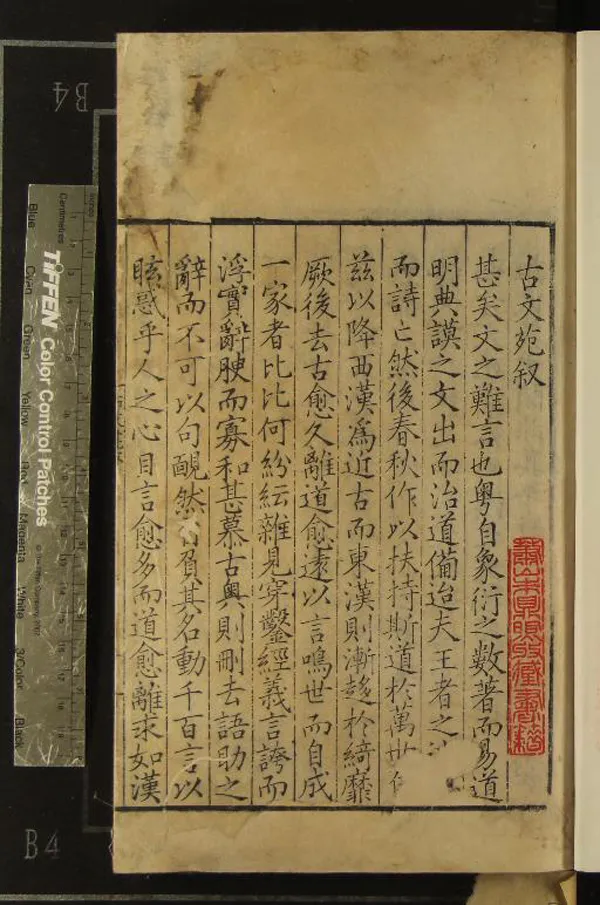 古文苑叙
甚矣文之難言也粤自象衍之數著而易道
明典謨之文出而治道備迨夫王者之
而詩亡然後春秋作以扶持斯道於萬世
兹以降西漢爲近古而東漢則漸趍於綺靡
厥後去古愈久離道愈遠以言鳴世而自成
一家者比比何紛紜雜見穿鑿經義言誇而
浮實辭腴而寡和甚慕古奥則刪去語助之
辭而不可以句靦然負其名動千百言以
眩惑乎人之心目言愈多而道愈離求如漢
B4
B4
TIFFEN Color Control Patches
Centimetres
Blue
Cyan
Green
Yellow
Red
Magenta
White
3/Color
Black